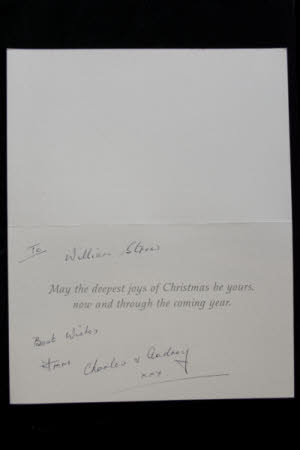 To William
May the deepest joys of Christmas be yours,
now and through the coming year.
Best Wishes
From Charles & Audrey
xxx